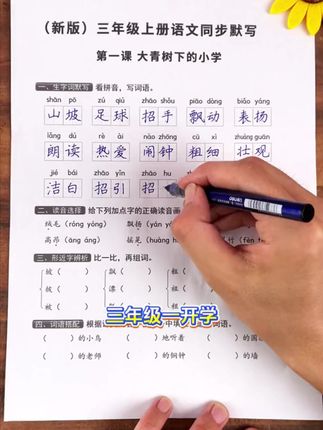 (新版)三年级上册语文同步默写
第一课 大青树下的小学
一、生字词默写 看拼音,写词语。
shān pō zú qiú zhāo shǒu piāo dòng biǎo yáng
山坡 足球 招手 飘动 表扬
lǎng dú rè ài nào zhōng cū xì zhuàng guān
朗读 热爱 闹钟 粗细 壮观
jié bái zhāo yǐn zhāo hu
洁白 招引 招
二、读音选择 给下列加点字的正确读音画
绒毛(róng yóng) 飘扬
高昂(áng āng) 摇晃(huàng
三、形近字辨析 比一比,再组词。
坡( ) 飘( ) 粗(
披( ) 漂( ) 组(
被( ) 租(
四、词语搭配 根据 词语。
( )的小鸟 ( )地听看 ( )的国
( )的老师 ( )的铜钟 ( )的墙
三年级一开学